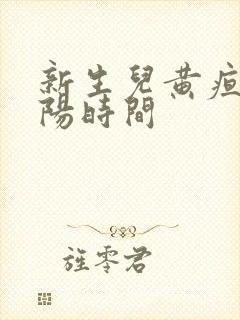 新生兒黃疸
陽時間
旌零君